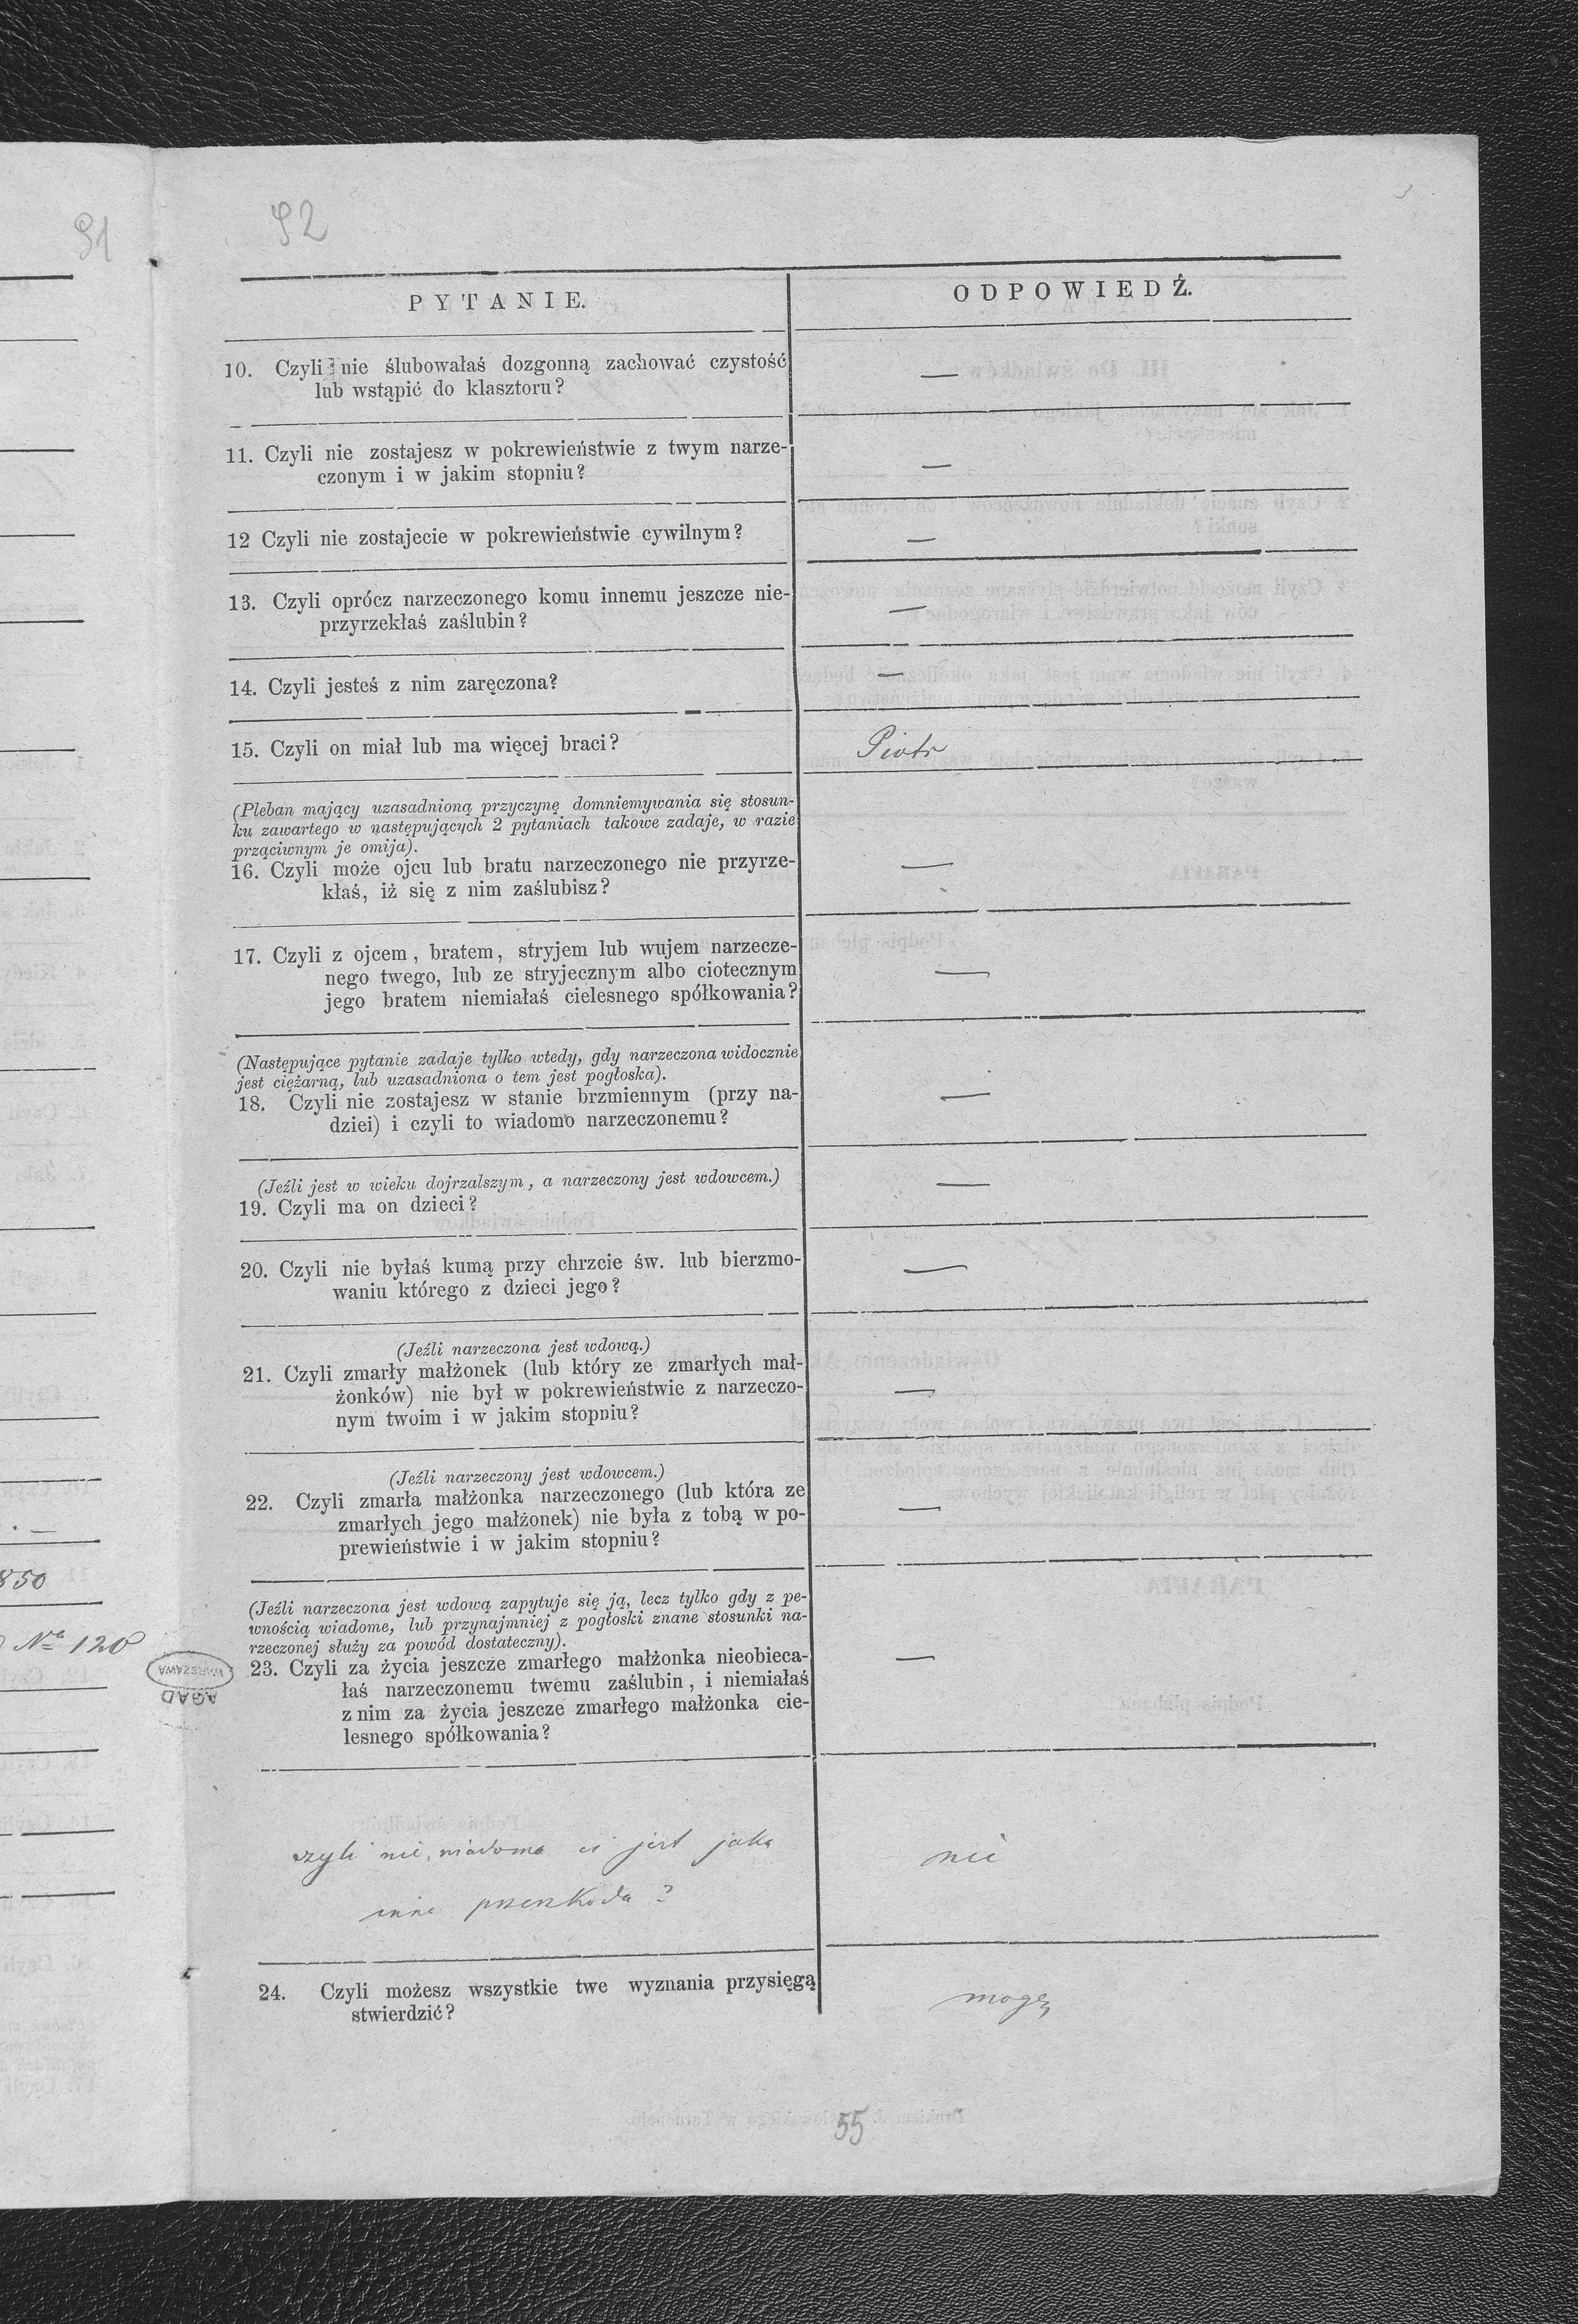 91
92
PYTANIE.
ODPOWIEDŹ.
10. Czyli nie ślubowałaś dozgonną zachować czystość
lub wstąpić do klasztoru?
—
11. Czyli nie zostajesz w pokrewieństwie z twym narze-
czonym i w jakim stopniu?
—
12 Czyli nie zostajecie w pokrewieństwie cywilnym?
—
13. Czyli oprócz narzeczonego komu innemu jeszcze nie-
przyrzekłaś zaślubin?
—
14. Czyli jesteś z nim zaręczona?
—
15. Czyli on miał lub ma więcej braci?
Piotr
(Pleban mający uzasadnioną przyczynę domniemywania się stosun-
ku zawartego w następujących 2 pytaniach takowe zadaje, w razie
prząciwnym je omija).
16. Czyli może ojcu lub bratu narzeczonego nie przyrze-
kłaś, iż się z nim zaślubisz?
—
17. Czyli z ojcem, bratem, stryjem lub wujem narzecze-
nego twego, lub ze stryjecznym albo ciotecznym
jego bratem niemiałaś cielesnego spółkowania?
—
(Następujące pytanie zadaje tylko wtedy, gdy narzeczona widocznie
jest ciężarną, lub uzasadniona o tem jest pogłoska).
18. Czyli nie zostajesz w stanie brzmiennym (przy na-
dziei) i czyli to wiadomo narzeczonemu?
—
(Jeźli jest w wieku dojrzalszym, a narzeczony jest wdowcem.)
19. Czyli ma on dzieci?
—
20. Czyli nie byłaś kumą przy chrzcie św. lub bierzmo-
waniu którego z dzieci jego?
—
(Jeźli narzeczona jest wdową.)
21. Czyli zmarły małżonek (lub który ze zmarłych mał-
żonków) nie był w pokrewieństwie z narzeczo-
nym twoim i w jakim stopniu?
—
(Jeźli narzeczony jest wdowcem.)
22. Czyli zmarła małżonka narzeczonego (lub która ze
zmarłych jego małżonek) nie była z tobą w po-
prewieństwie i w jakim stopniu?
—
850
(Jeźli narzeczona jest wdową zapytuje się ją, lecz tylko gdy z pe-
wnością wiadome, lub przynajmniej z pogłoski znane stosunki na-
rzeczonej służy za powód dostateczny).
Nº 120
WARSZAWA
AGAD
23. Czyli za życia jeszcze zmarłego małżonka nieobieca-
łaś narzeczonemu twemu zaślubin, i niemiałaś
z nim za życia jeszcze zmarłego małżonka cie-
lesnego spółkowania?
—
czyli nie wiadoma ci jest jaka
inna przeszkoda?
nie
24. Czyli możesz wszystkie twe wyznania przysięgą
stwierdzić?
mogę
55